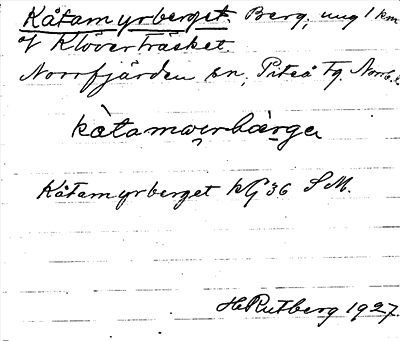 Kåtamyrberget. Berg, ung 1 km
af Klöverträsket.
Norrfjärden sn, Piteå tg. Norrb. l.
kåtamyrbärge
Kåtamyrberget hG 36 SM.
H Rutberg 1927.